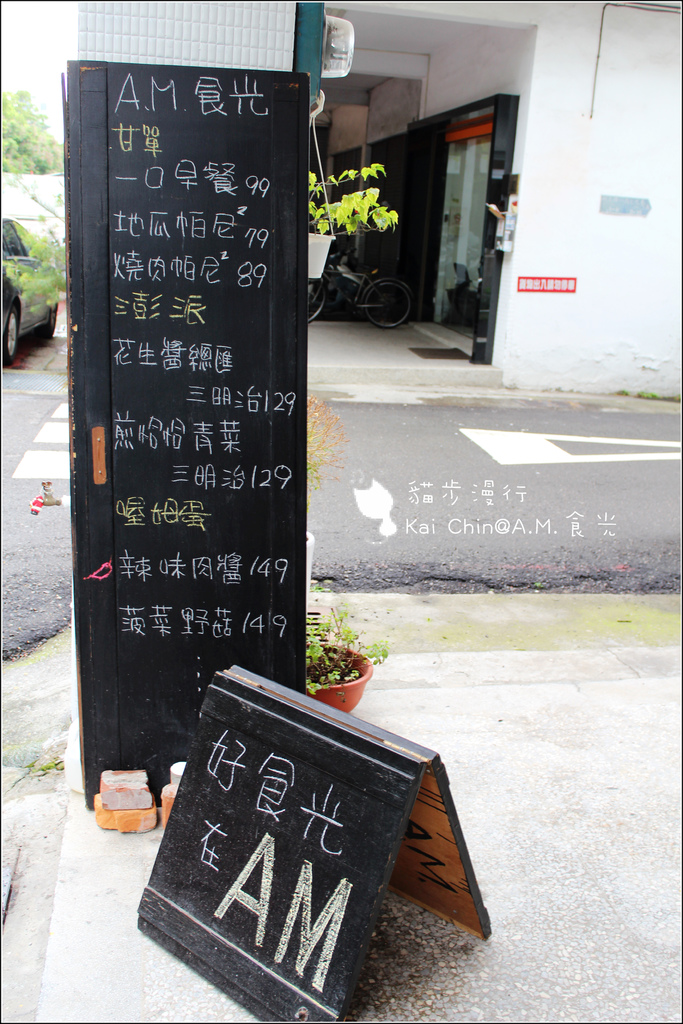 A.M. 食光
甘單
一口早餐 99
地瓜帕尼² 79
燒肉帕尼² 89
澎派
花生醬總匯
三明治 129
煎恰恰青菜
三明治 129
喔姆蛋
辣味肉醬 149
菠菜野菇 149
好食光
在
AM
A.M.
貓步漫行
Kai Chin@A.M. 食光